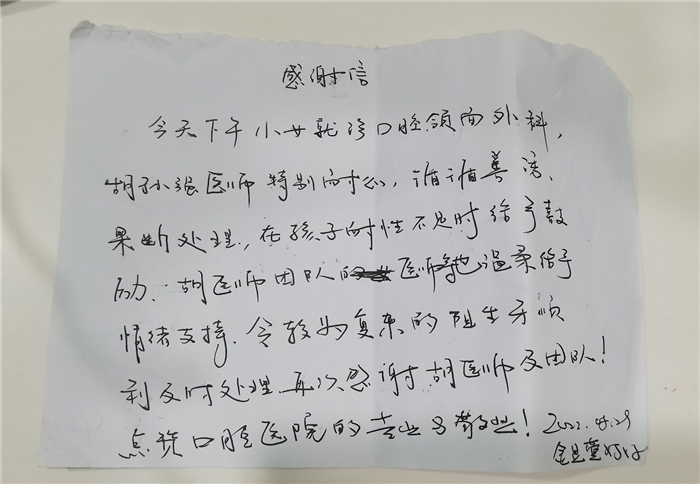 感谢信
今天下午小女就诊口腔颌面外科，
胡孙强医师特别耐心，循循善诱、
果断处理，在孩子耐性不足时给予鼓
励. 胡医师团队的医师她温柔给予
情绪支持. 令较为复杂的阻生牙顺
利及时处理. 再次感谢胡医师及团队！
点赞口腔医院的专业与敬业！ 2022.